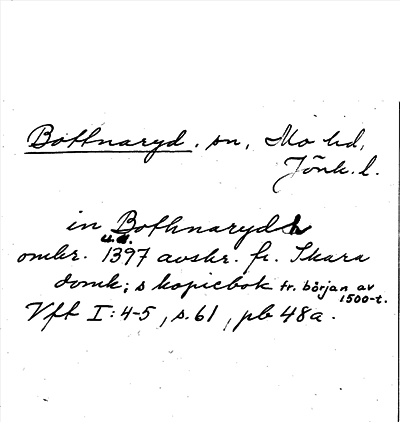 Bottnaryd. sn, Mo hd,
Jönk. l.
in Bothnarydh
u.d.
omkr. 1397 avskr. fr. Skara
domk:s kopiebok fr. början av
1500-t.
Vft I:4-5, s.61, pb 48a.